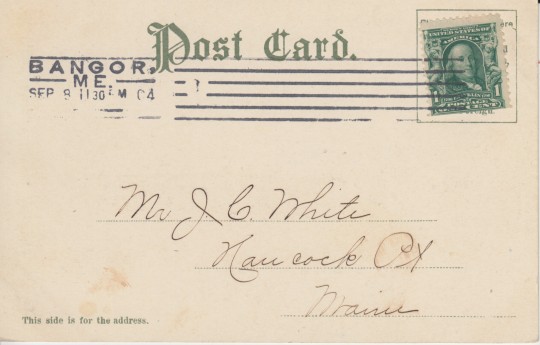 Post Card.
BANGOR,
ME.
SEP 8 1130 AM 04
UNITED STATES OF
AMERICA
1 POSTAGE 1
Mr J. C. White
Hancock Pt
Maine
This side is for the address.